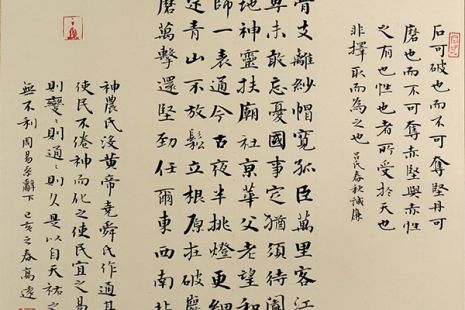 石可破也而不可奪堅丹可
磨也而不可奪赤堅與赤性
之有也性也者所受於天也
非擇取而為之也 呂氏春秋誠廉
骨支離紗帽寬孤臣萬里客江
卑未敢忘憂國事定猶須待闔
地神靈扶廟社京華父老望和
師一表通今古夜半挑燈更細
定青山不放鬆立根原在破巖
磨萬擊還堅勁任爾東西南北
神農氏沒黃帝堯舜氏作通其
使民不倦神而化之使民宜之易
則變〻則通〻則久是以自天祐之
無不利 周易系辭下 己亥之春高遠